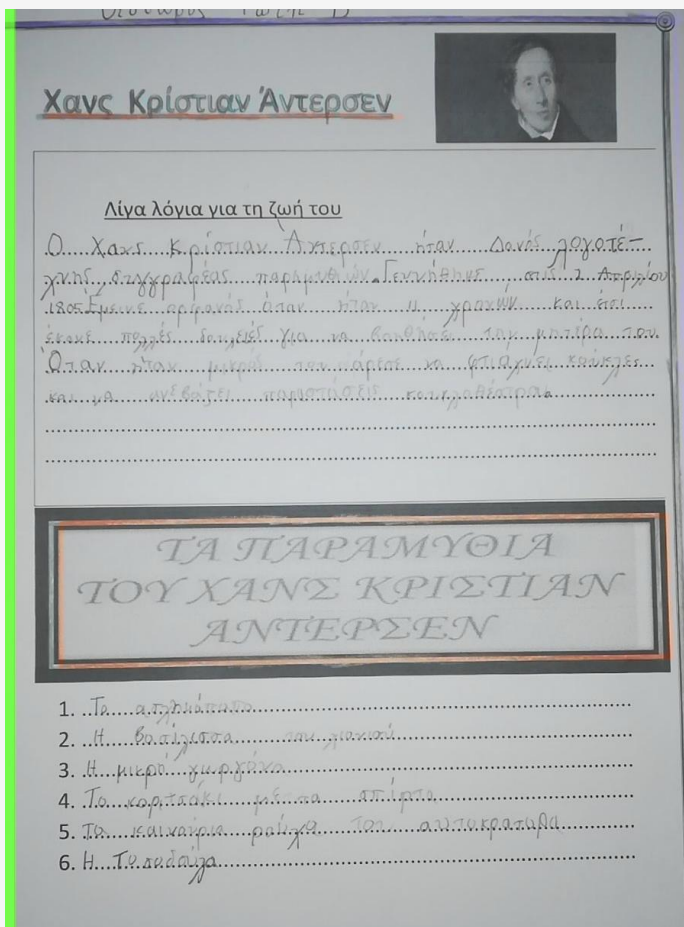 Χανς Κρίστιαν Άντερσεν
Λίγα λόγια για τη ζωή του
Ο Χανς Κρίστιαν Άντερσεν ήταν Δανός λογοτέ-
χνης, συγγραφέας παραμυθιών. Γεννήθηκε στις 2 Απριλίου
1805. Έμεινε ορφανός όταν ήταν 11 χρονών και έτσι
έκανε πολλές δουλειές για να βοηθήσει την μητέρα του.
Όταν ήταν μικρός του άρεσε να φτιάχνει κούκλες
και να ανεβάζει παραστάσεις κουκλοθέατρου.
ΤΑ ΠΑΡΑΜΥΘΙΑ
ΤΟΥ ΧΑΝΣ ΚΡΙΣΤΙΑΝ
ΑΝΤΕΡΣΕΝ
1. Το
2. Η βασίλισσα του χιονιού
3. Η μικρή γοργόνα
4. Το κοριτσάκι με τα σπίρτα
5. Τα καινούρια ρούχα του αυτοκράτορα
6. Η